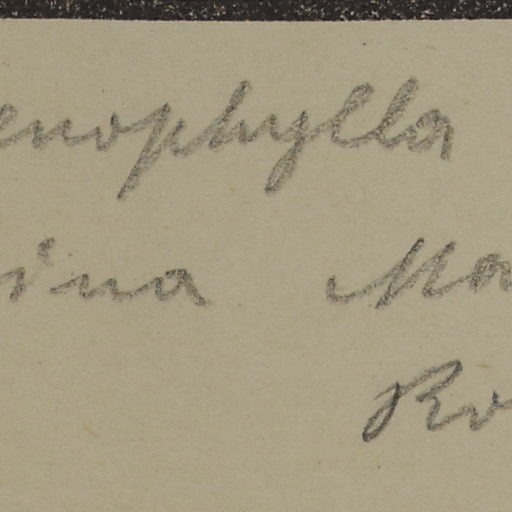 enophylla
ina Ma
Ro